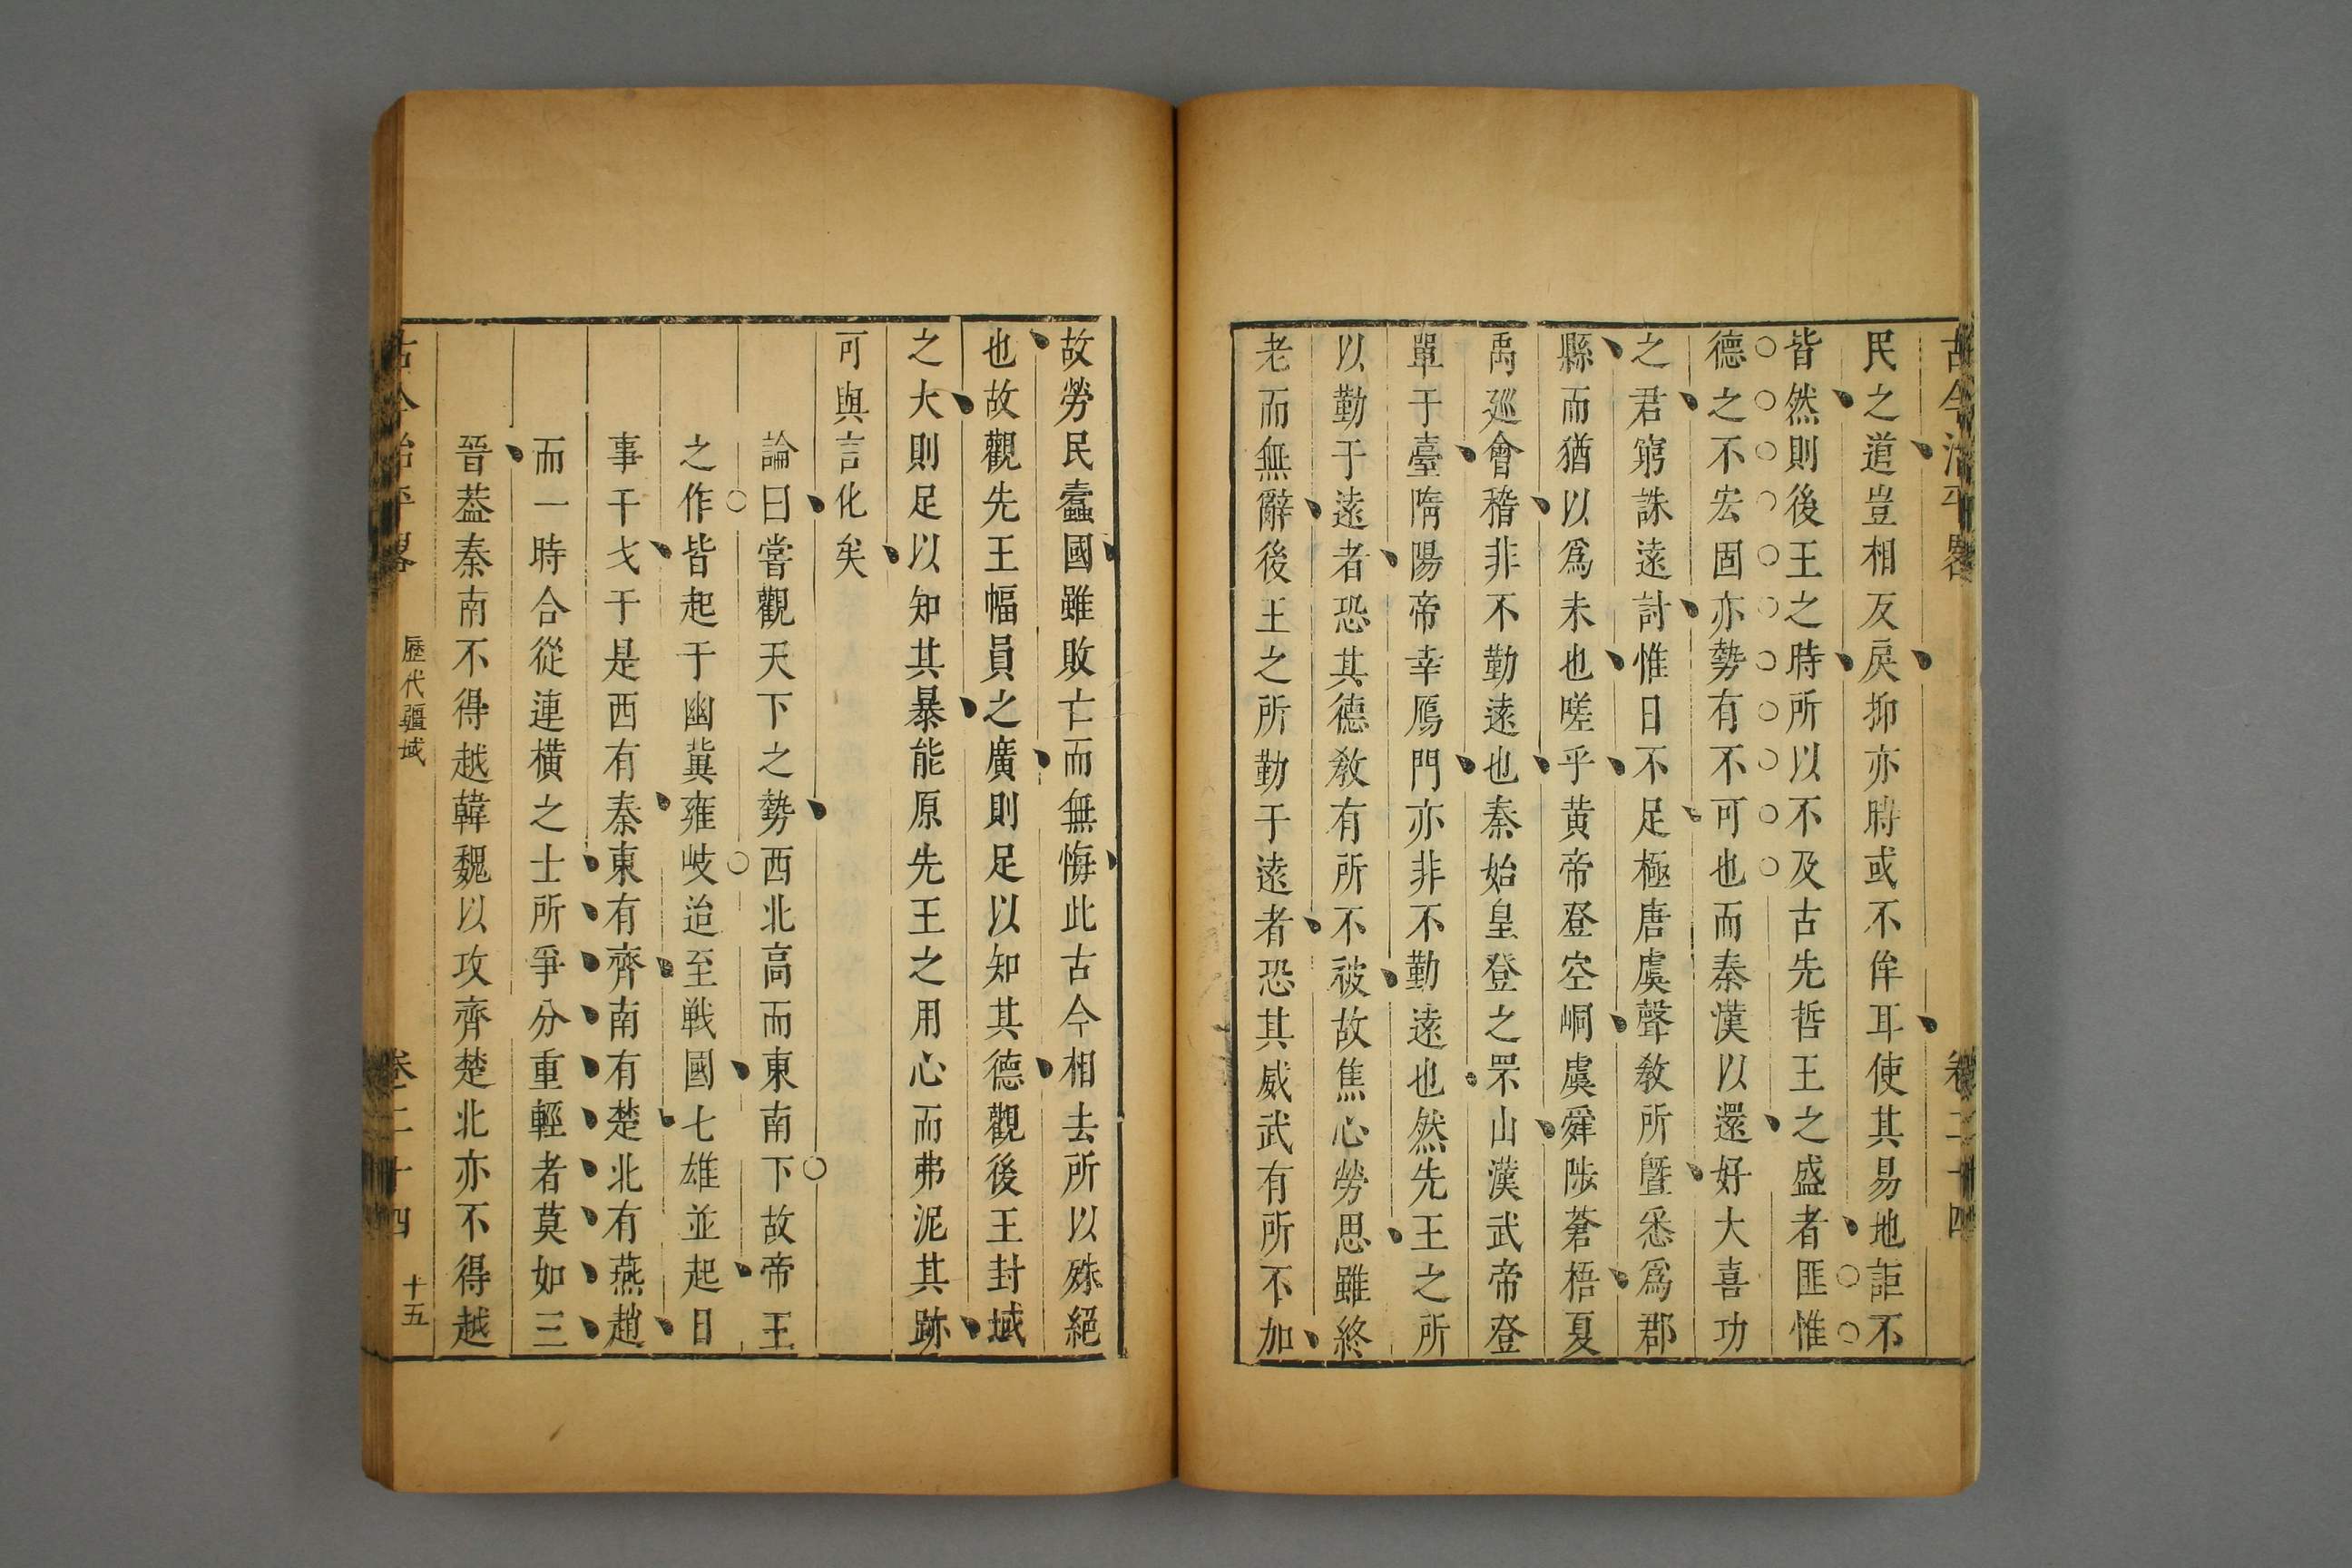 古今治平畧
卷二十四
民之道豈相反戾抑亦時或不侔耳使其易地詎不
皆然則後王之時所以不及古先哲王之盛者匪惟
德之不宏固亦勢有不可也而秦漢以還好大喜功
之君窮誅遠討惟日不足極唐虞聲教所曁悉爲郡
縣而猶以爲未也嗟乎黃帝登空峒虞舜陟蒼梧夏
禹巡會稽非不勤遠也秦始皇登之罘山漢武帝登
單于臺隋陽帝幸鴈門亦非不勤遠也然先王之所
以勤于遠者恐其德教有所不被故焦心勞思雖終
老而無辭後王之所勤于遠者恐其威武有所不加
故勞民蠹國雖敗亡而無悔此古今相去所以殊絕
也故觀先王幅員之廣則足以知其德觀後王封域
之大則足以知其暴能原先王之用心而弗泥其跡
可與言化矣
論曰嘗觀天下之勢西北高而東南下故帝王
之作皆起于幽冀雍岐迨至戰國七雄並起日
事干戈于是西有秦東有齊南有楚北有燕趙
而一時合從連橫之士所爭分重輕者莫如三
晉葢秦南不得越韓魏以攻齊楚北亦不得越
古今治平畧
歷代疆域
卷二十四
十五